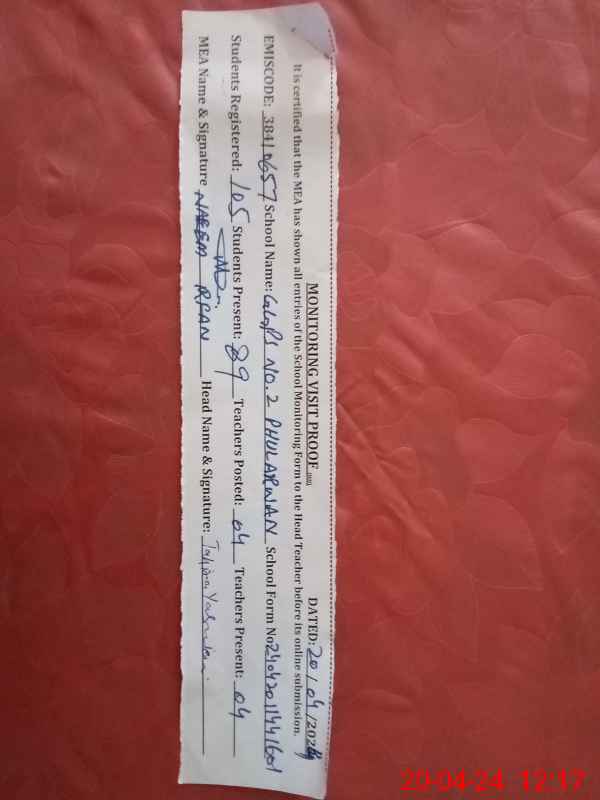 MONITORING VISIT PROOF DATED: 20/04/2024
It is certified that the MEA has shown all entries of the School Monitoring Form to the Head Teacher before its online submission.
EMISCODE: 38410657 School Name: GGPS NO.2 PHULARWAN School Form No
Students Registered: 105 Students Present: 89 Teachers Posted: 04 Teachers Present: 04
MEA Name & Signature NAEEM Head Name & Signature:
20-04-24 12:17